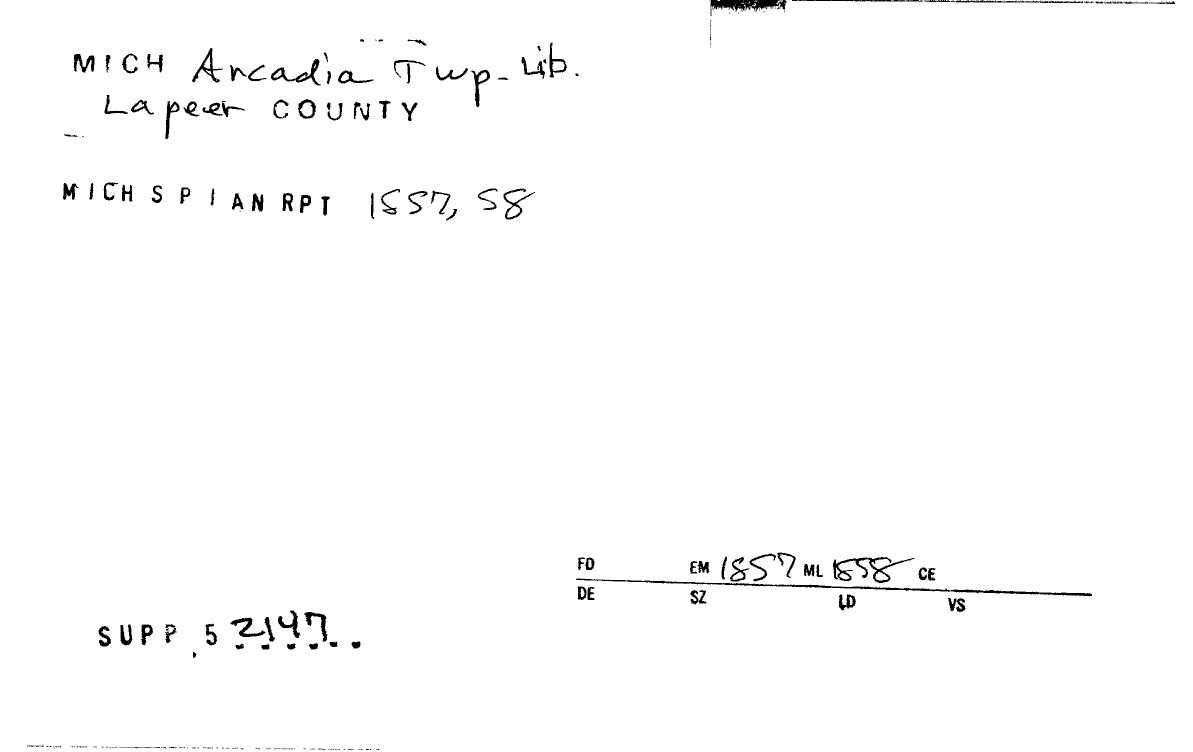 MICH Arcadia Twp. Lib.
Lapeer COUNTY
MICH S P I AN RPT 1857, 58
FD EM 1857 ML 1858 CE
DE SZ LD VS
SUPP. 5 2147